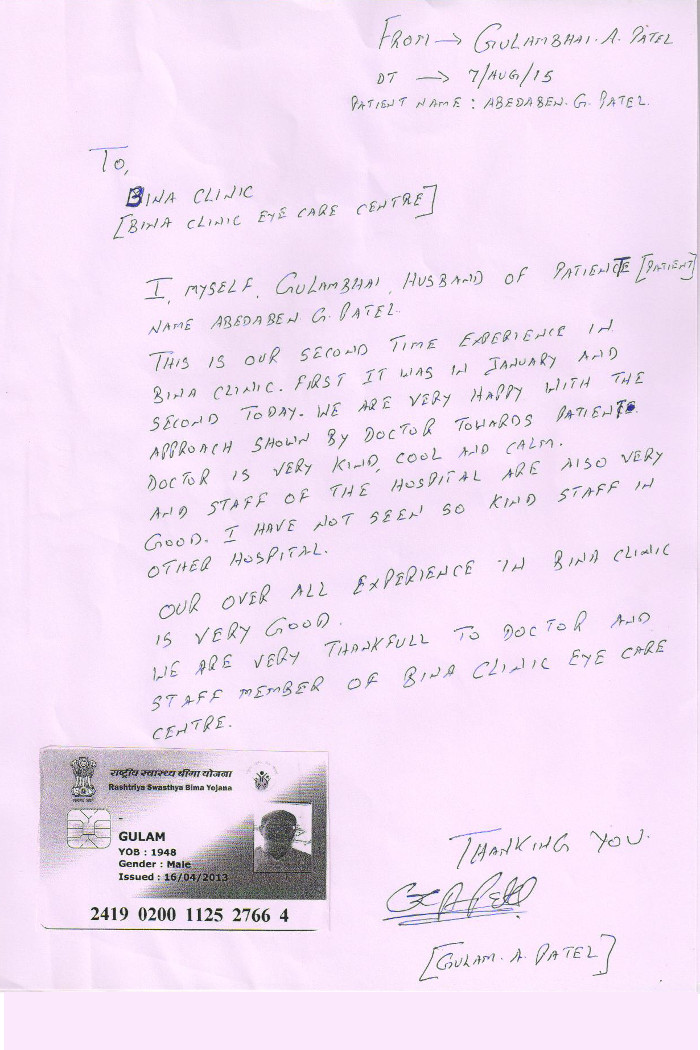 FROM → GULAMBHAI. A. PATEL
DT → 7/AUG/15
PATIENT NAME : ABEDABEN. G. PATEL.
To,
BINA CLINIC
[BINA CLINIC EYE CARE CENTRE]
I, MYSELF, GULAMBHAI, HUSBAND OF PATIENTE [PATIENT]
NAME ABEDABEN G. PATEL.
THIS IS OUR SECOND TIME EXPERIENCE IN
BINA CLINIC. FIRST IT WAS IN JANUARY AND
SECOND TODAY. WE ARE VERY HAPPY WITH THE
APPROACH SHOWN BY DOCTOR TOWARDS PATIENT.
DOCTOR IS VERY KIND, COOL AND CALM.
AND STAFF OF THE HOSPITAL ARE ALSO VERY
GOOD. I HAVE NOT SEEN SO KIND STAFF IN
OTHER HOSPITAL.
OUR OVER ALL EXPERIENCE IN BINA CLINIC
IS VERY GOOD.
WE ARE VERY THANKFULL TO DOCTOR AND
STAFF MEMBER OF BINA CLINIC EYE CARE
CENTRE.
राष्ट्रीय स्वास्थ्य बीमा योजना
Rashtriya Swasthya Bima Yojana
GULAM
YOB : 1948
Gender : Male
Issued : 16/04/2013
2419 0200 1125 2766 4
THANKING YOU.
[GULAM. A. PATEL]